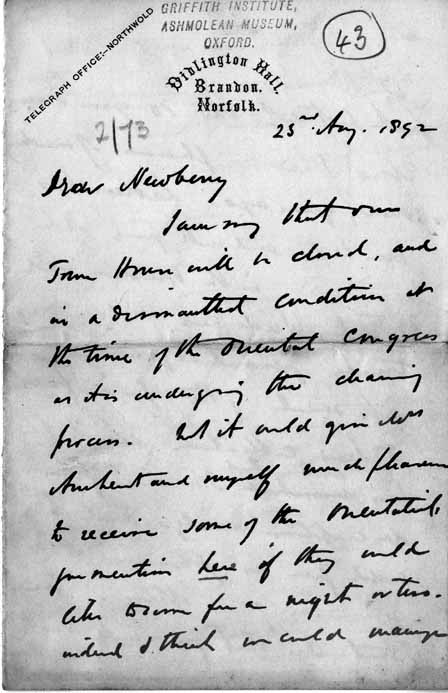 GRIFFITH INSTITUTE,
ASHMOLEAN MUSEUM,
OXFORD.
43
TELEGRAPH OFFICE:—NORTHWOLD
Didlington Hall,
Brandon,
Norfolk.
2/73
23rd Aug. 1892
Dear Newberry
I am sorry that our
Town House will be closed, and
in a dismantled condition at
the time of the Oriental Congress
as it is undergoing the cleaning
process. But it would give Mrs
Amherst and myself much pleasure
to receive some of the Orientalists
you mention here if they would
like to come for a night or two.
indeed I think we could manage